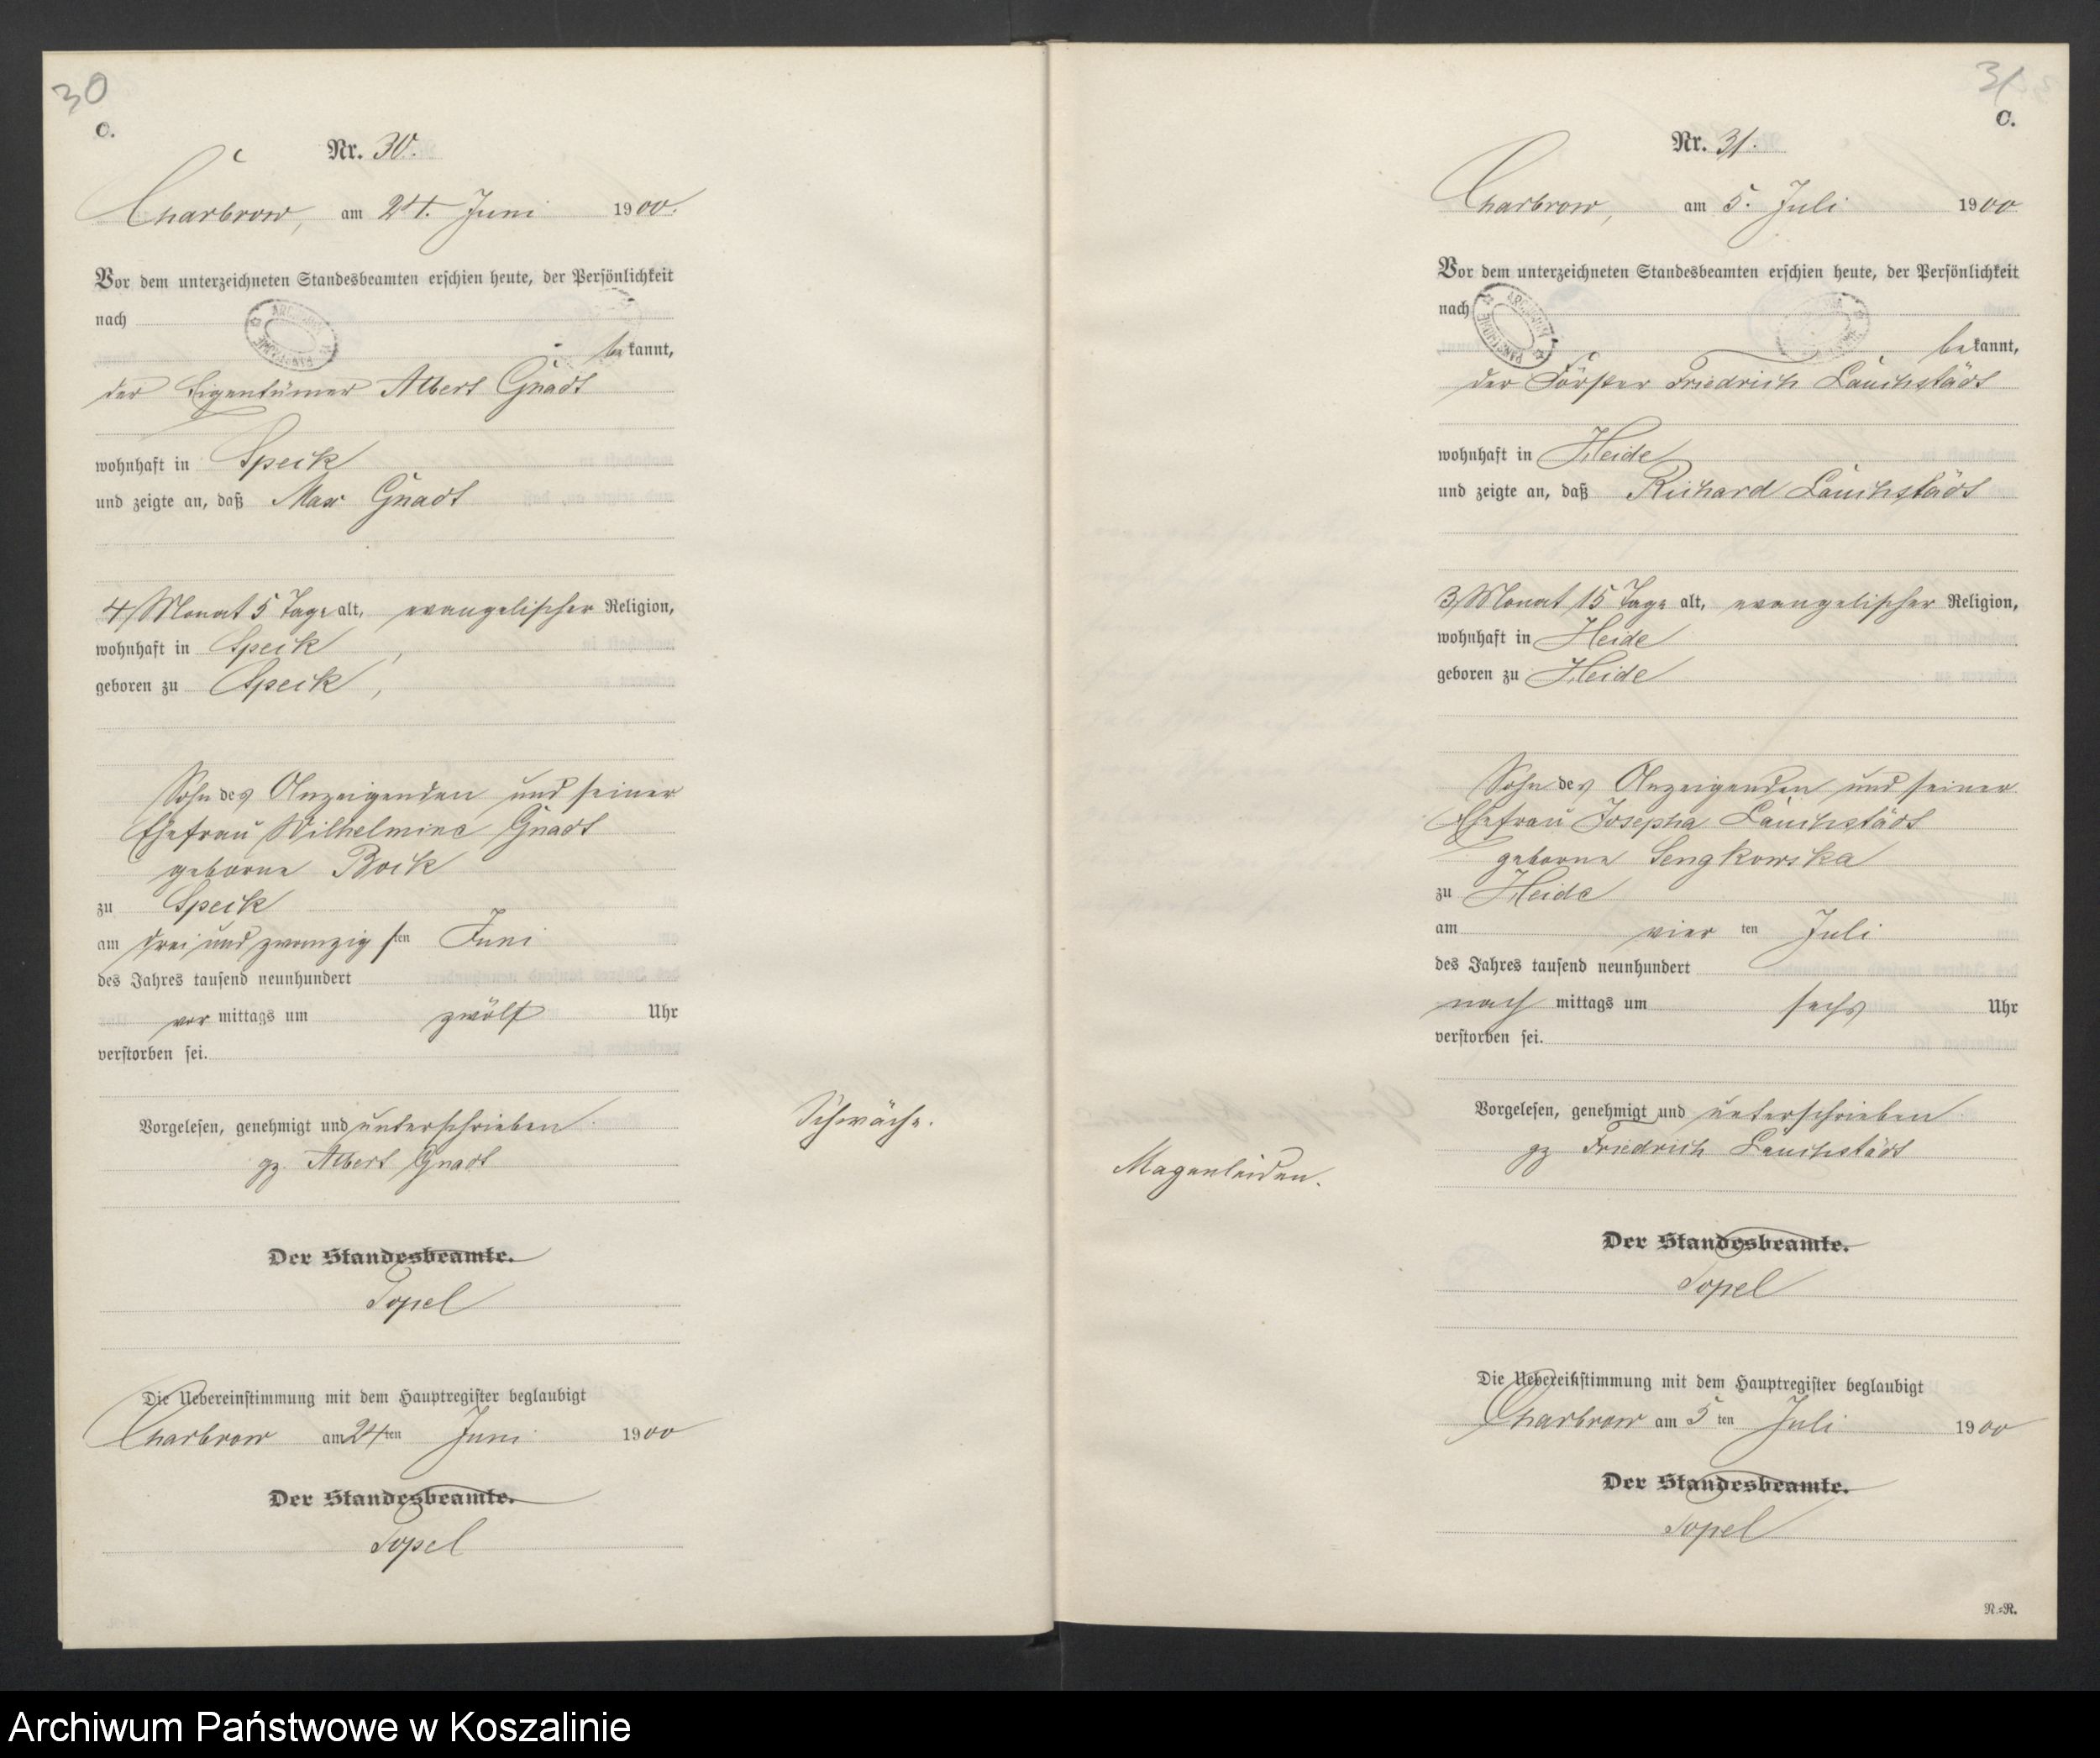 30
C.
Nr. 30.
Charbrow, am 24. Juni 1900.
Vor dem unterzeichneten Standesbeamten erschien heute, der Persönlichkeit
nach
bekannt,
der Eigentümer Albert Gnadt
wohnhaft in Speck
und zeigte an, daß Max Gnadt
4 Monat 5 Tage alt, evangelischer Religion,
wohnhaft in Speck,
geboren zu Speck,
Sohn des Anzeigenden und seiner
Ehefrau Wilhelmine Gnadt
geborne Bock
zu Speck
am drei und zwanzigsten Juni
des Jahres tausend neunhundert
vor mittags um zwölf Uhr
verstorben sei.
Vorgelesen, genehmigt und unterschrieben
gz. Albert Gnadt
Schwäche.
Der Standesbeamte.
Topel
Die Uebereinstimmung mit dem Hauptregister beglaubigt
Charbrow am 24ten Juni 1900
Der Standesbeamte.
Topel
31
C.
Nr. 31.
Charbrow, am 5. Juli 1900
Vor dem unterzeichneten Standesbeamten erschien heute, der Persönlichkeit
nach
bekannt,
der Förster Friedrich Lauchstädt
wohnhaft in Heide
und zeigte an, daß Richard Lauchstädt
3 Monat 15 Tage alt, evangelischer Religion,
wohnhaft in Heide
geboren zu Heide
Sohn des Anzeigenden und seiner
Ehefrau Josepha Lauchstädt
geborne Sengkowska
zu Heide
am vier ten Juli
des Jahres tausend neunhundert
nach mittags um sechs Uhr
verstorben sei.
Vorgelesen, genehmigt und unterschrieben
gz Friedrich Lauchstädt
Magenleiden.
Der Standesbeamte.
Topel
Die Uebereinstimmung mit dem Hauptregister beglaubigt
Charbrow am 5 ten Juli 1900
Der Standesbeamte.
Topel
N.=R.
Archiwum Państwowe w Koszalinie